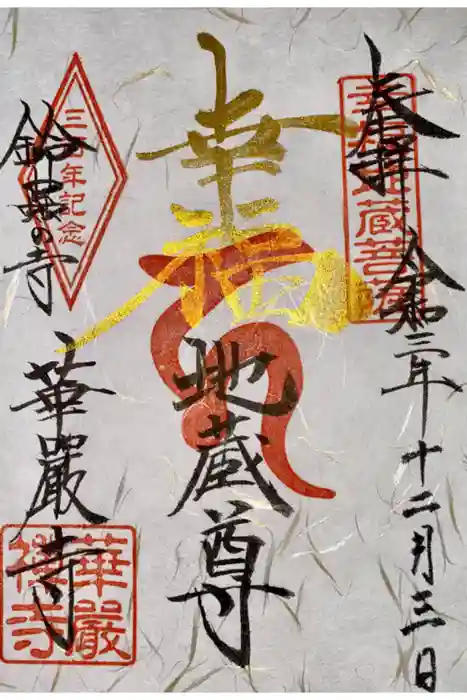 奉拝
令和三年十二月三日
幸福
地蔵尊
鈴虫の寺
華厳寺
三百年記念
幸福地蔵菩薩
華厳禅寺